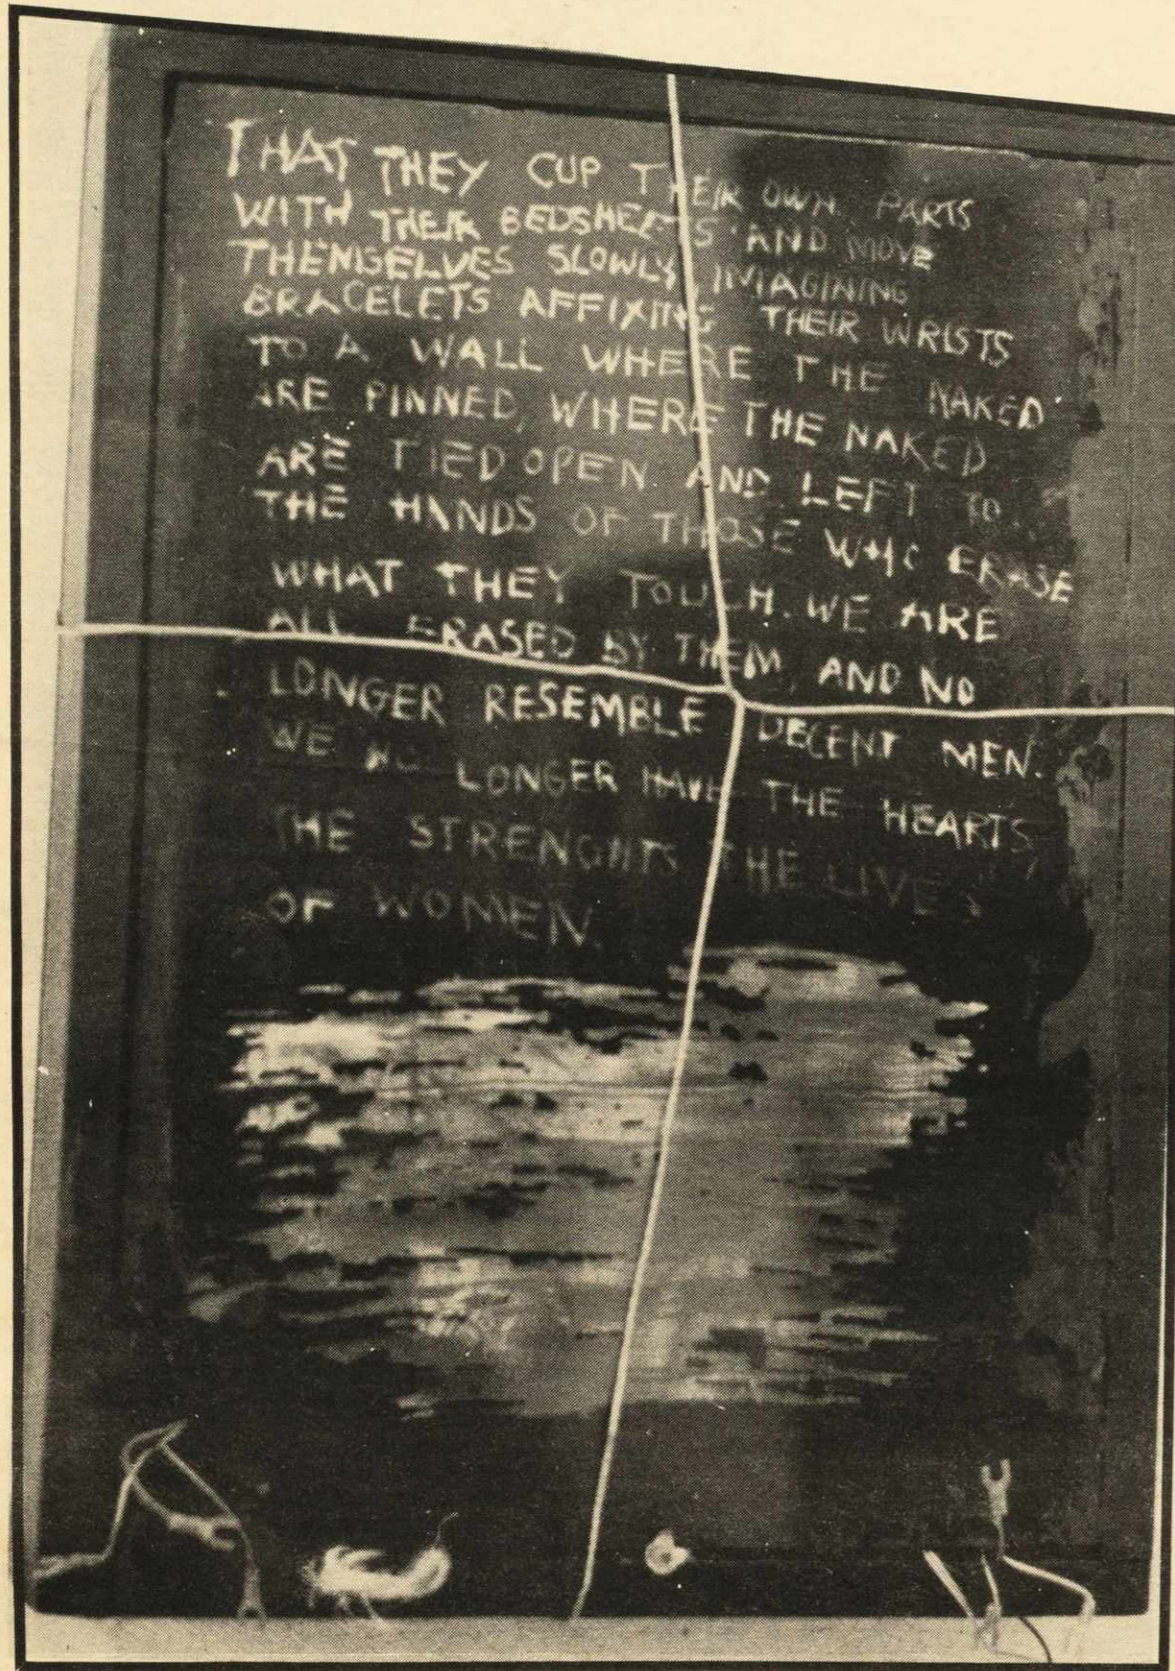 THAT THEY CUP THEIR OWN PARTS
WITH THEIR BEDSHEETS AND MOVE
THEMSELVES SLOWLY IMAGINING
BRACELETS AFFIXING THEIR WRISTS
TO A WALL WHERE THE NAKED
ARE PINNED, WHERE THE NAKED
ARE TIED OPEN AND LEFT TO
THE HANDS OF THOSE WHO ERASE
WHAT THEY TOUCH. WE ARE
ALL ERASED BY THEM, AND NO
LONGER RESEMBLE DECENT MEN.
WE NO LONGER HAVE THE HEARTS,
THE STRENGHTS THE LIVES
OF WOMEN.